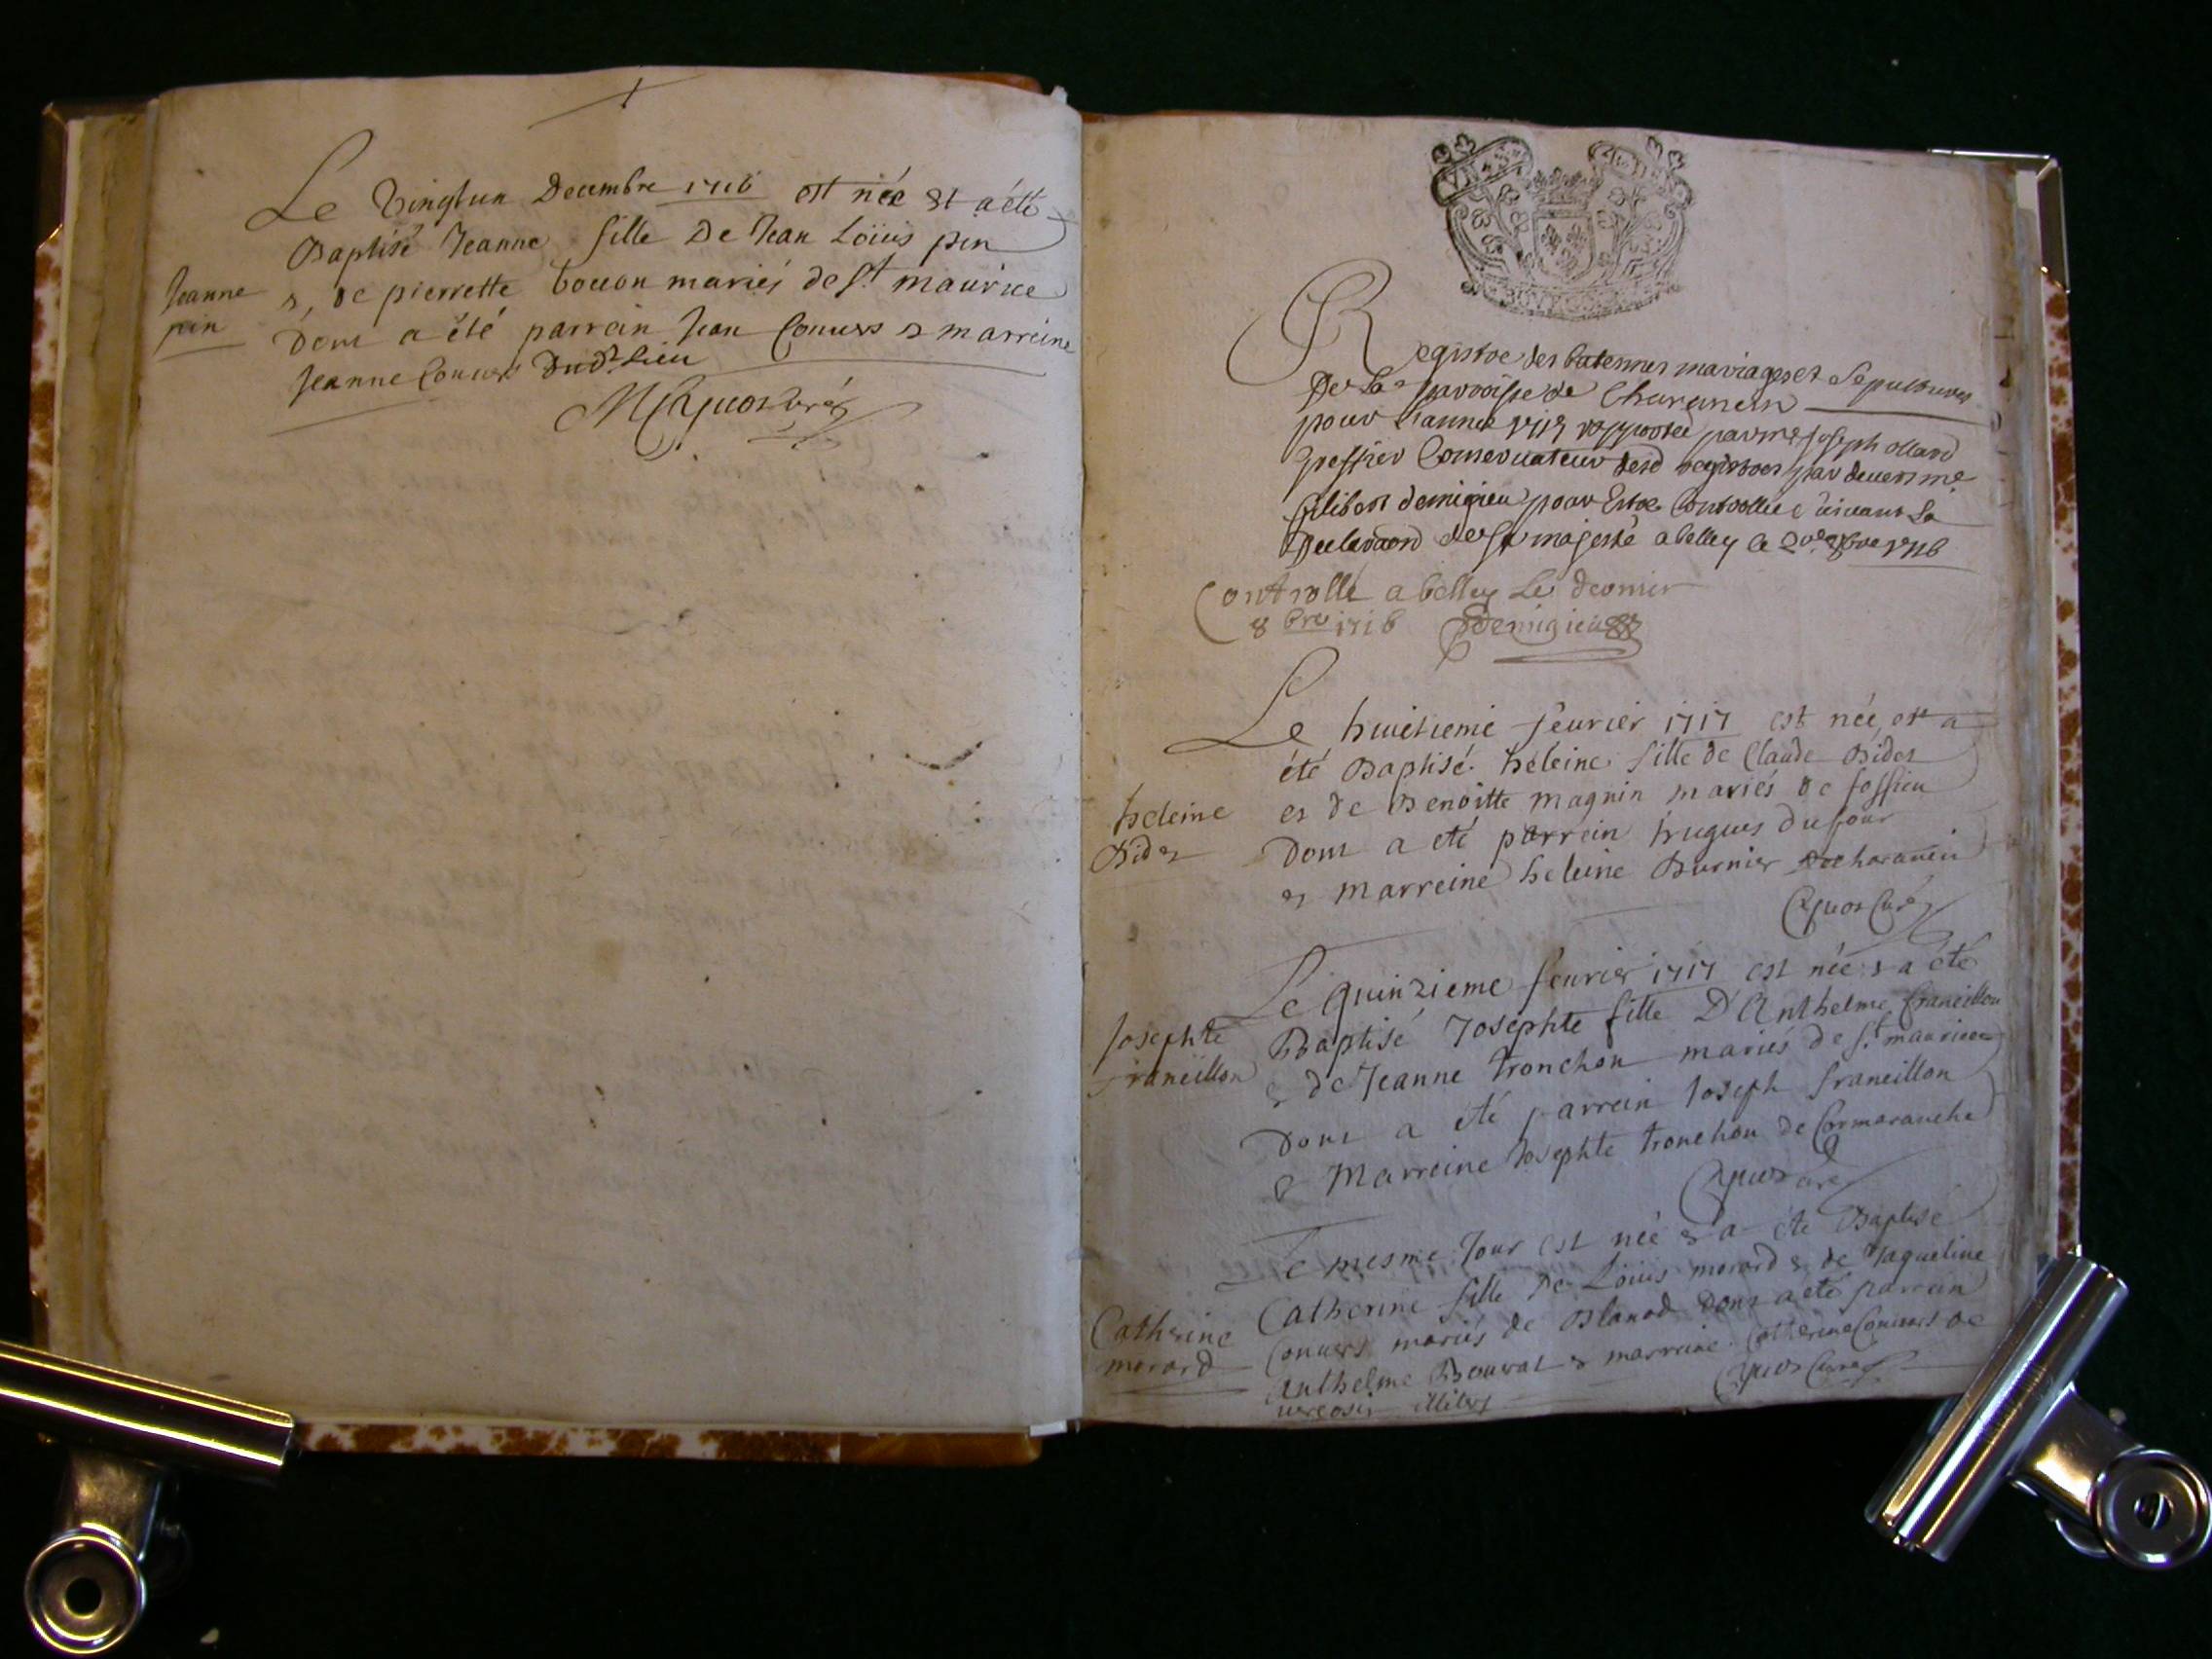 Le vingtun Decembre 1716 est née et a été
Baptisé Jeanne fille De Jean Loüis pin
Jeanne
pin
& de pierrette bouon mariés de St maurice
Dont a été parrein Jean Conuers & marreine
Jeanne Conuers Dudt Lieu
Curé
Registre des batesmes mariages et Sepultures
De La parroisse de Charancin
pour Lannee 1717 rapportée par me Joseph ollard
greffier Conseruateur desd registres par deuers me
filibert demigieu pour Estre Controllee Suiuant La
Declaraon de sa majesté a belley ce 20e 8bre 1716
Controllé a belley Le dernier
8bre 1716 Demigieu
Le huitieme feurier 1717 est née et a
été Baptisé heleine fille de Claude Bidet
heleine
Bidet
et de Benoitte magnin mariés de fossieu
Dont a eté parrein hugues dufour
et marreine heleine Burnier de charancin
Curé
Le quinzieme feurier 1717 est née & a été
Josephte
francillon
Baptisé Josephte fille D'Anthelme francillon
& de Jeanne tronchon mariés de St maurice
Dont a été parrein Joseph francillon
& Marreine Josephte tronchon de Cormaranche
Curé
Le mesme Jour est née & a été Baptisé
Catherine fille De Loüis morard & de Jaqueline
Catherine
morard
Conuers mariés de Blanod Dont a été parrein
Anthelme Bouuat & marreine Catherine Conuers de
illiters
Curé